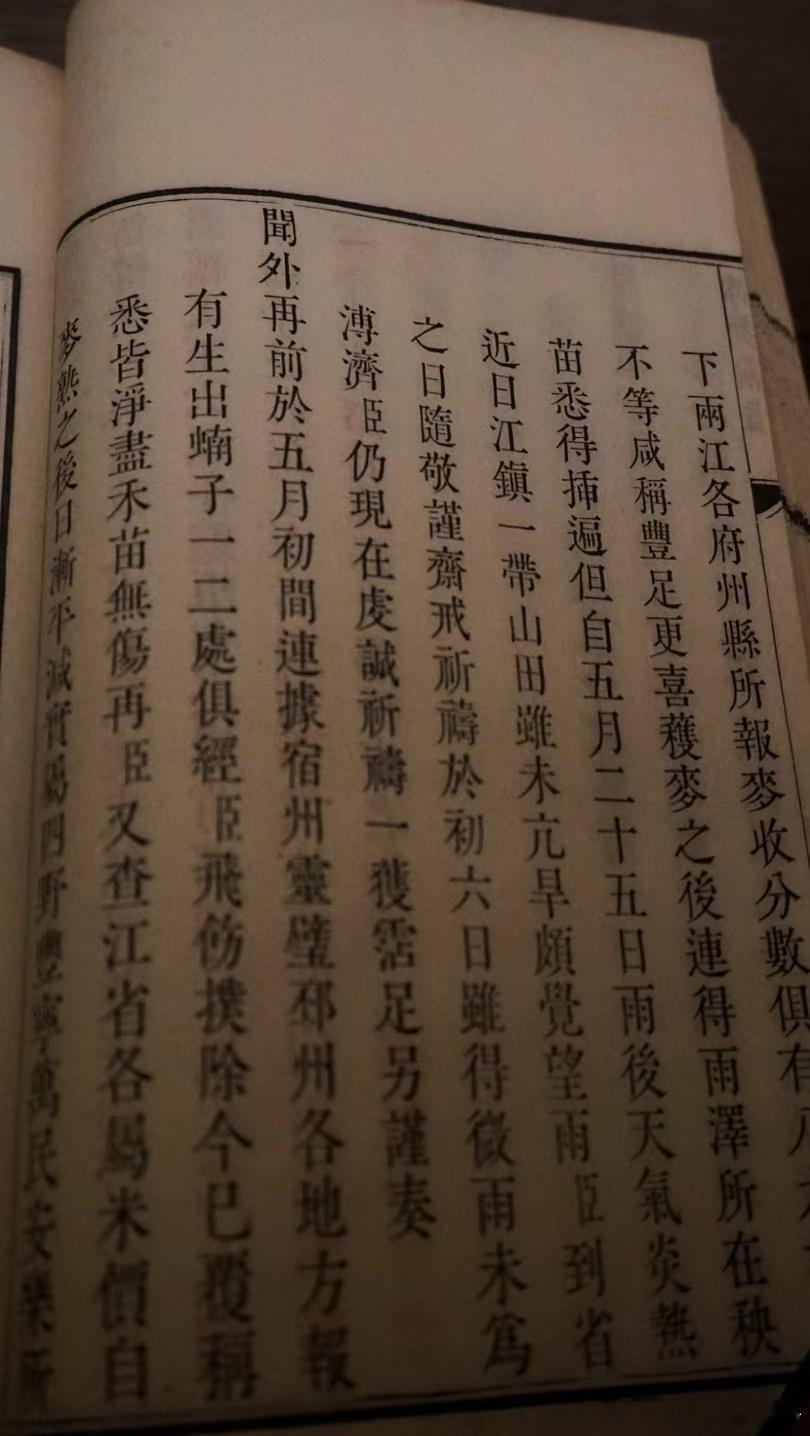 下兩江各府州縣所報麥收分數俱有八
不等咸稱豐足更喜穫麥之後連得雨澤所在秧
苗悉得揷遍但自五月二十五日雨後天氣炎熱
近日江鎮一帶山田雖未亢旱頗覺望雨臣到省
之日隨敬謹齋戒祈禱於初六日雖得微雨未爲
溥濟臣仍現在虔誠祈禱一獲霑足另謹奏
聞外再前於五月初間連據宿州靈璧邳州各地方報
有生出蝻子一二處俱經臣飛飭撲除今已覆稱
悉皆淨盡禾苗無傷再臣又查江省各屬米價自
麥熟之後日漸平減實屬四野豐寧萬民安樂所